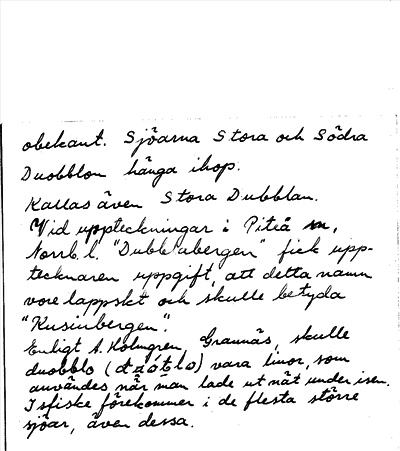 obekant. Sjöarna Stora och Södra
Duobblon hänga ihop.
Kallas även Stora Dubblan.
Vid uppteckningar i Piteå sn,
Norrb. l. "Dubblabergen" fick upp-
tecknaren uppgift, att detta namn
vore lappskt och skulle betyda
"Kusinbergen".
Enligt A. Holmgren, Grannäs, skulle
duobblo vara linor, som
användes när man lade ut nät under isen.
Isfiske förekommer i de flesta större
sjöar, även dessa.